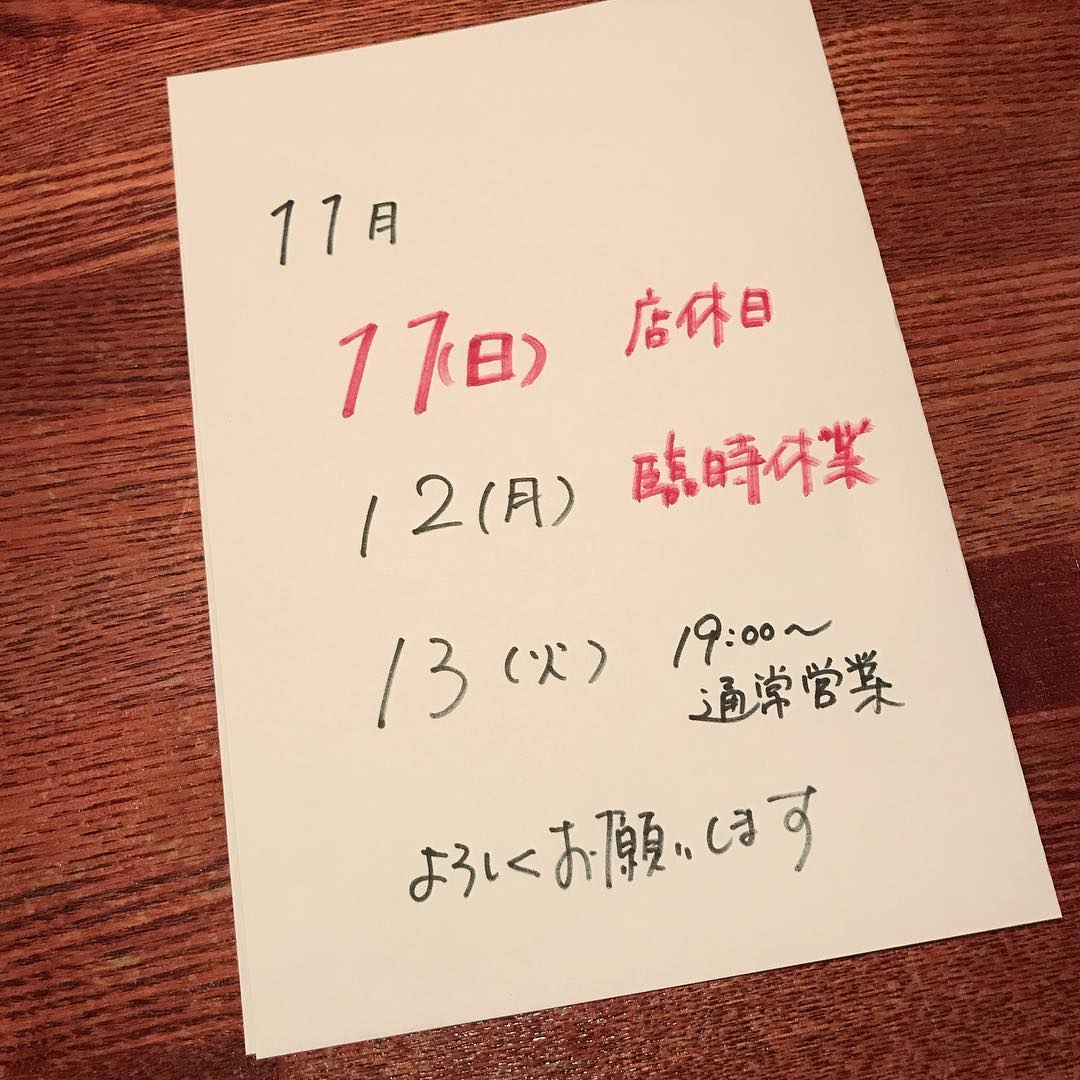 11月
11(日) 店休日
12(月) 臨時休業
13(火) 19:00~
通常営業
よろしくお願いします